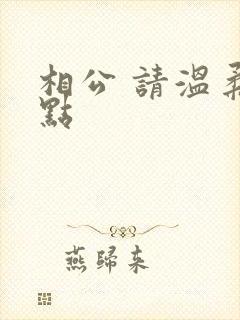 相公 請溫柔
點
燕歸來